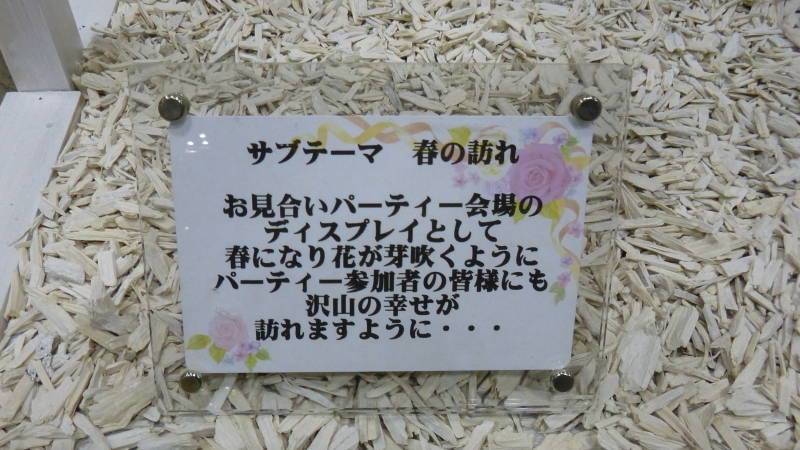 サブテーマ　春の訪れ
お見合いパーティー会場の
ディスプレイとして
春になり花が芽吹くように
パーティー参加者の皆様にも
沢山の幸せが
訪れますように・・・